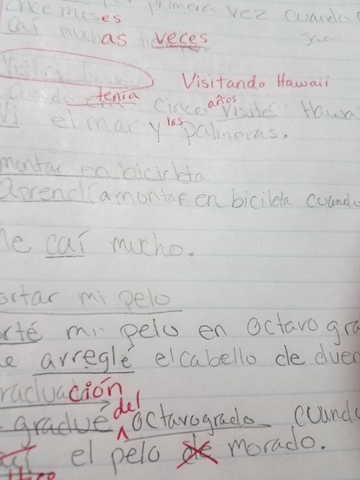 once meses primera vez cuando
caí muchas veces
Visitando Hawaii
tenía cince años visité Hawa
Vi el mar y las palmeras.
montar en bicicleta
Aprendí a montar en bicileta cuando
Me caí mucho.
ortar mi pelo
orté mi pelo en octavo gra
e arreglé el cabello de
raduación
gradué del octavo grado cuando
el pelo de morado.